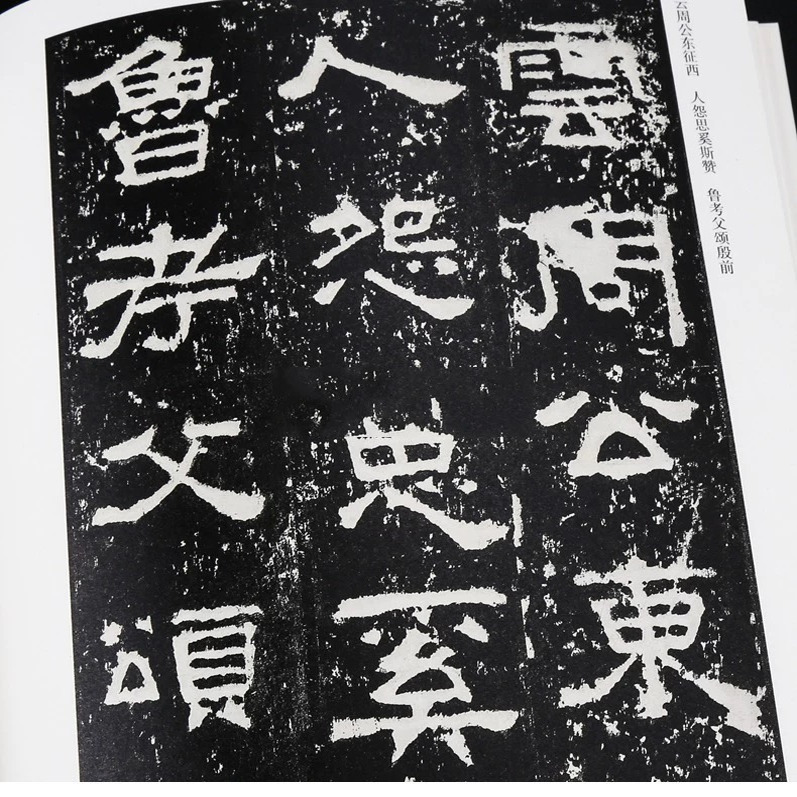 云周公东征西 人怨思奚斯赞 鲁考父颂殷前
雲周公東
人怨思奚
魯考父頌